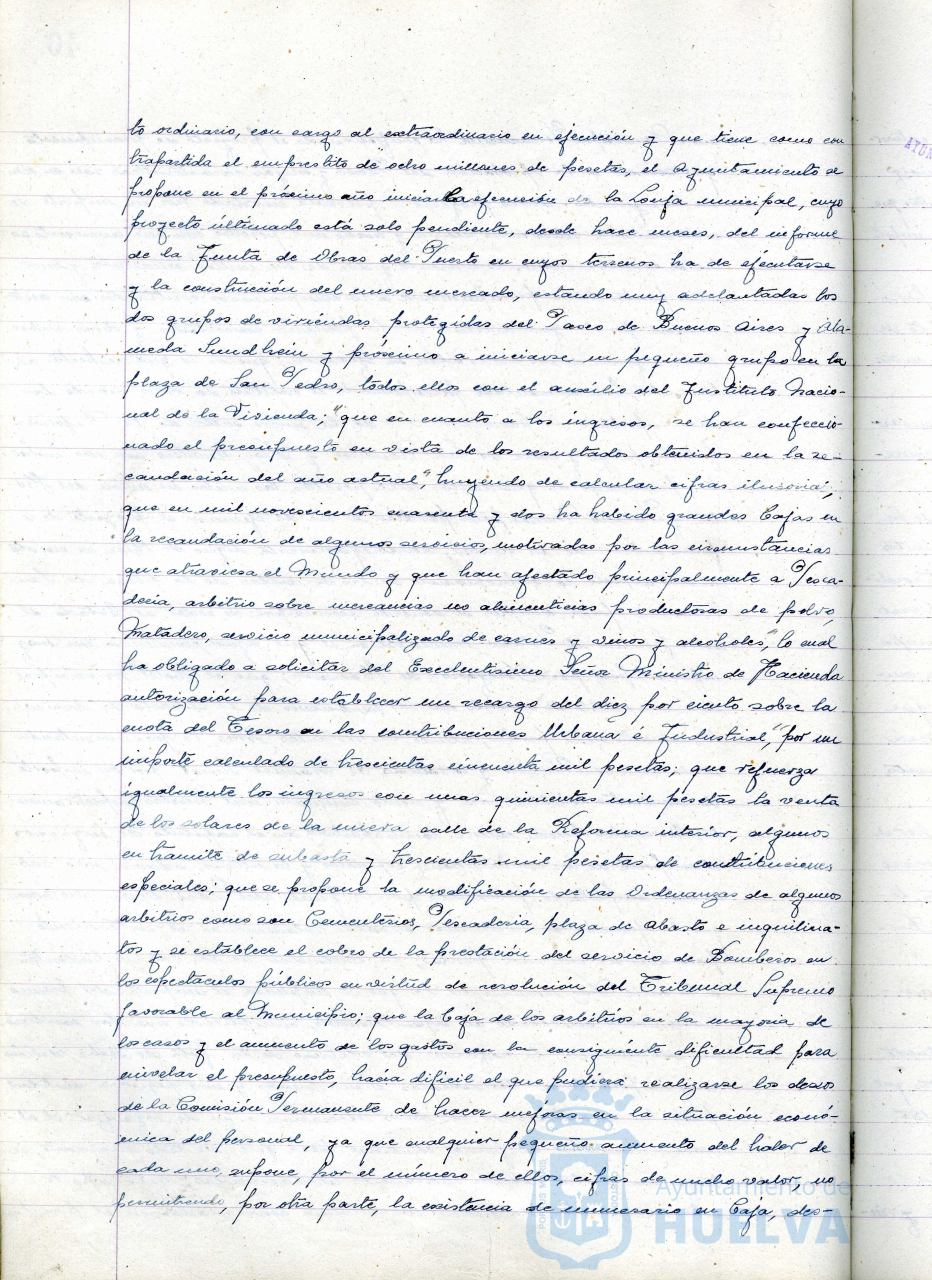 to ordinario, con cargo al extraordinario en ejecución y que tiene como con
trapartida el emprestito de ocho millones de pesetas, el Ayuntamiento se
propone en el próximo año iniciar la ejecución de la Lonja municipal, cuyo
proyecto últimado está solo pendiente, desde hace meses, del informe
de la Junta de Obras del Puerto en cuyos terrenos ha de ejecutarse
y la construcción del nuevo mercado, estando muy adelantadas los
dos grupos de viviendas protegidas del Paseo de Buenos Aires y Ala-
meda Sundhein y próximo a iniciarse un pequeño grupo en la
plaza de San Pedro, todos ellos con el auxilio del Instituto Nacio-
nal de la Vivienda; "que en cuanto a los ingresos, se han confeccio
nado el presupuesto en vista de los resultados obtenidos en la re-
caudación del año actual", huyendo de calcular cifras ilusorias;
que en mil novescientos cuarenta y dos ha habido grandes bajas en
la recaudación de algunos servicios, motivadas por las circunstancias
que atraviesa el Mundo y que han afectado principalmente a Pesca-
dería, arbitrio sobre mercancías no alimenticias productoras de polvo,
Matadero, servicio municipalizado de carnes y vinos y alcoholes," lo cual
ha obligado a solicitar del Excelentísimo Señor Ministro de Hacienda
autorización para establecer un recargo del diez por ciento sobre la
cuota del Tesoro en las contribuciones Urbana é Industrial," por un
importe calculado de trescientas cincuenta mil pesetas; que refuerza
igualmente los ingresos con unas quinientas mil pesetas la venta
de los solares de la nueva calle de la Reforma interior, algunos
en tramite de subasta y trescientas mil pesetas de contribuciones
especiales; que se propone la modificación de las Ordenanzas de algunos
arbitrios como son Cementerios, Pescaderia, plaza de abasto e inquilina-
tos y se establece el cobro de la prestación del servicio de Bomberos en
los espectaculos públicos en virtud de resolución del Tribunal Supremo
favorable al Municipio; que la baja de los arbitrios en la mayoria de
los casos y el aumento de los gastos con la consiguiente dificultad para
nivelar el presupuesto, hacía dificil el que pudiera realizarse los deseos
de la Comisión Permanente de hacer mejoras en la situación econó-
mica del personal, ya que cualquier pequeño aumento del haber de
cada uno, supone, por el número de ellos, cifras de mucho valor, no
permitiendo, por otra parte, la existencia de numerario en Caja, des-
Ayuntamiento de
HUELVA